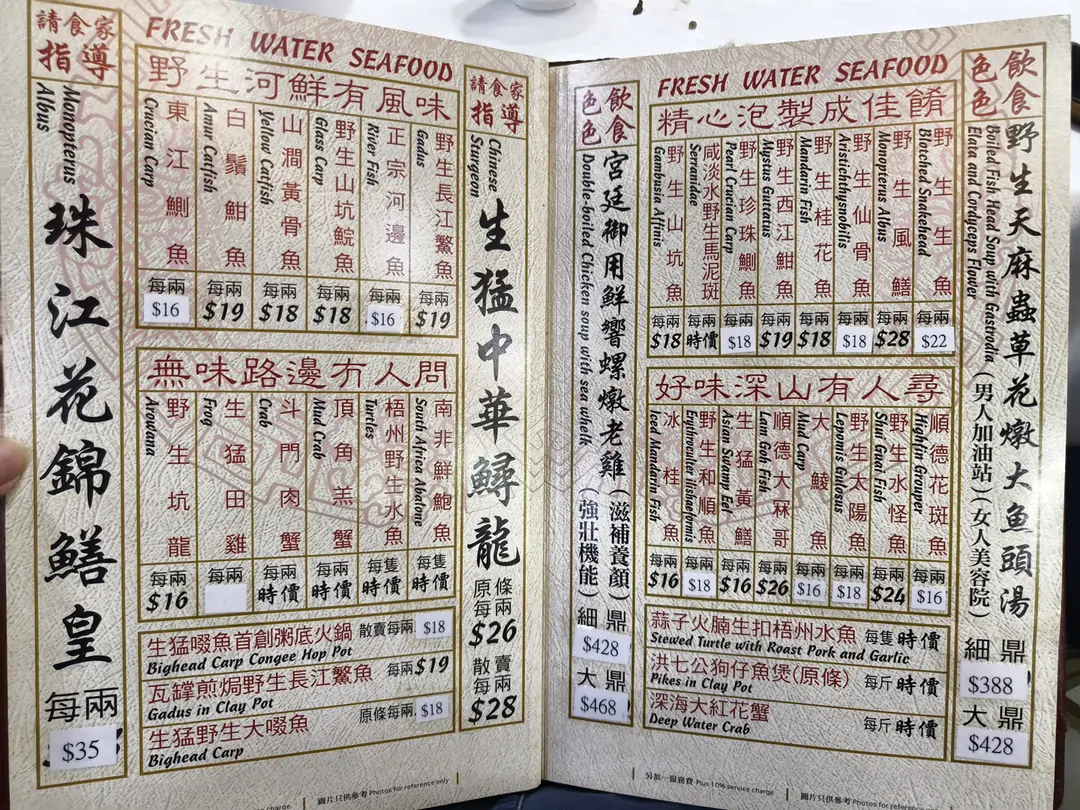 請食家
指導
Monopterus
Albus
珠江花錦鱔皇
每兩
$35
FRESH WATER SEAFOOD
野生河鮮有風味
東江鯽魚
Crucian Carp
每兩
$16
白鬚魽魚
Amur Catfish
每兩
$19
山澗黃骨魚
Yellow Catfish
每兩
$18
野生山坑鯇魚
Glass Carp
每兩
$18
正宗河邊魚
River Fish
每兩
$16
野生長江鱉魚
Gadus
每兩
$19
無味路邊冇人問
野生坑龍
Arowana
每兩
$16
生猛田雞
Frog
每兩
斗門肉蟹
Crab
每兩
時價
頂角羔蟹
Mud Crab
每兩
時價
梧州野生水魚
Turtles
每隻
時價
南非鮮鮑魚
South Africa Abalone
每隻
時價
生猛啜魚首創粥底火鍋 散賣每兩 $18
Bighead Carp Congee Hop Pot
瓦鐣煎焗野生長江鱉魚 每兩 $19
Gadus in Clay Pot
生猛野生大啜魚 原條每兩 $18
Bighead Carp
請食家
指導
Chinese
Sturgeon
生猛中華鱘龍
原條
每兩
$26
散賣
每兩
$28
service charge.
圖片只供參考 Photos for reference only
飲食
色色
宮廷御用鮮響螺燉老雞(滋補養顏)
(強壯機能)
Double-boiled Chicken soup with sea whelk
細鼎
$428
大鼎
$468
FRESH WATER SEAFOOD
精心泡製成佳餚
野生山坑魚
Gambusia Affinis
每兩
$18
咸淡水野生馬泥斑
Serranidae
每兩
時價
野生珍珠鯽魚
Pearl Crucian Carp
每兩
$18
野生西江魽魚
Mystus Guttatus
每兩
$19
野生桂花魚
Mandarin Fish
每兩
$18
野生仙骨魚
Aristichthysnobilis
每兩
$18
野生風鱔
Monopterus Albus
每兩
$28
野生生魚
Blotched Snakehead
每兩
$22
好味深山有人尋
冰桂魚
Iced Mandarin Fish
每兩
$16
野生和順魚
Erythroculter ilishaeformis
每兩
$18
生猛黃鱔
Asian Swamp Eel
每兩
$16
順德大冧哥
Lam Goh Fish
每兩
$26
大鯪魚
Mud Carp
每兩
$16
野生太陽魚
Lepomis Gulosus
每兩
$18
野生水怪魚
Shui Guai Fish
每兩
$24
順德花斑魚
Highfin Grouper
每兩
$16
蒜子火腩生扣梧州水魚 每隻 時價
Stewed Turtle with Roast Pork and Garlic
洪七公狗仔魚煲(原條) 每斤 時價
Pikes in Clay Pot
深海大紅花蟹 每斤 時價
Deep Water Crab
飲食
色色
野生天麻蟲草花燉大魚頭湯
(男人加油站)(女人美容院)
Boiled Fish Head Soup with Gastrodia
Elata and Cordyceps Flower
細鼎
$388
大鼎
$428
另加一服務費 Plus 10% service charge
圖片只供參考 Photos for reference only